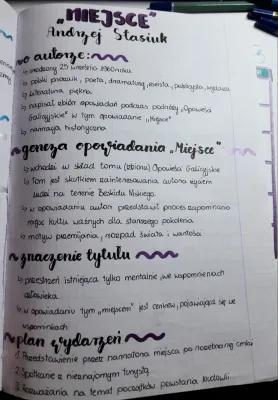 „MIEJSCE"
Andrzej Stasiuk
o autorze:
↳ urodzony 25 września 1960 roku
↳ polski prozaik, poeta, dramaturg, eseista, publicysta, wydawca
↳ literatura piękna
↳ napisał zbiór opowiadań podczas podróży „Opowieści
Galicyjskie" w tym opowiadanie „Miejsce"
↳ narracja historyczna
geneza opowiadania „Miejsce"
↳ wchodzi w skład tomu (zbioru) Opowieści Galicyjskie
↳ Tom jest skutkiem zainteresowania autora życiem
ludzi na terenie Beskidu Niskiego.
↳ w opowiadaniu autor przedstawił proces zapominania
kultu ważnych dla starszego pokolenia
↳ motyw przemijania, rozpad świata i wartości
znaczenie tytułu
↳ przestrzeń istniejąca tylko mentalnie, we wspomnieniach
człowieka.
↳ w opowiadaniu tym „miejscem" jest cerkiew, pojawiająca się we
wspomnieniach
plan wydarzeń
1. Przedstawienie przez narratora miejsca po rozebranej cerkwi
2. Spotkanie z nieznajomym turystą.
3. Rozważania na temat początków powstania budowli.